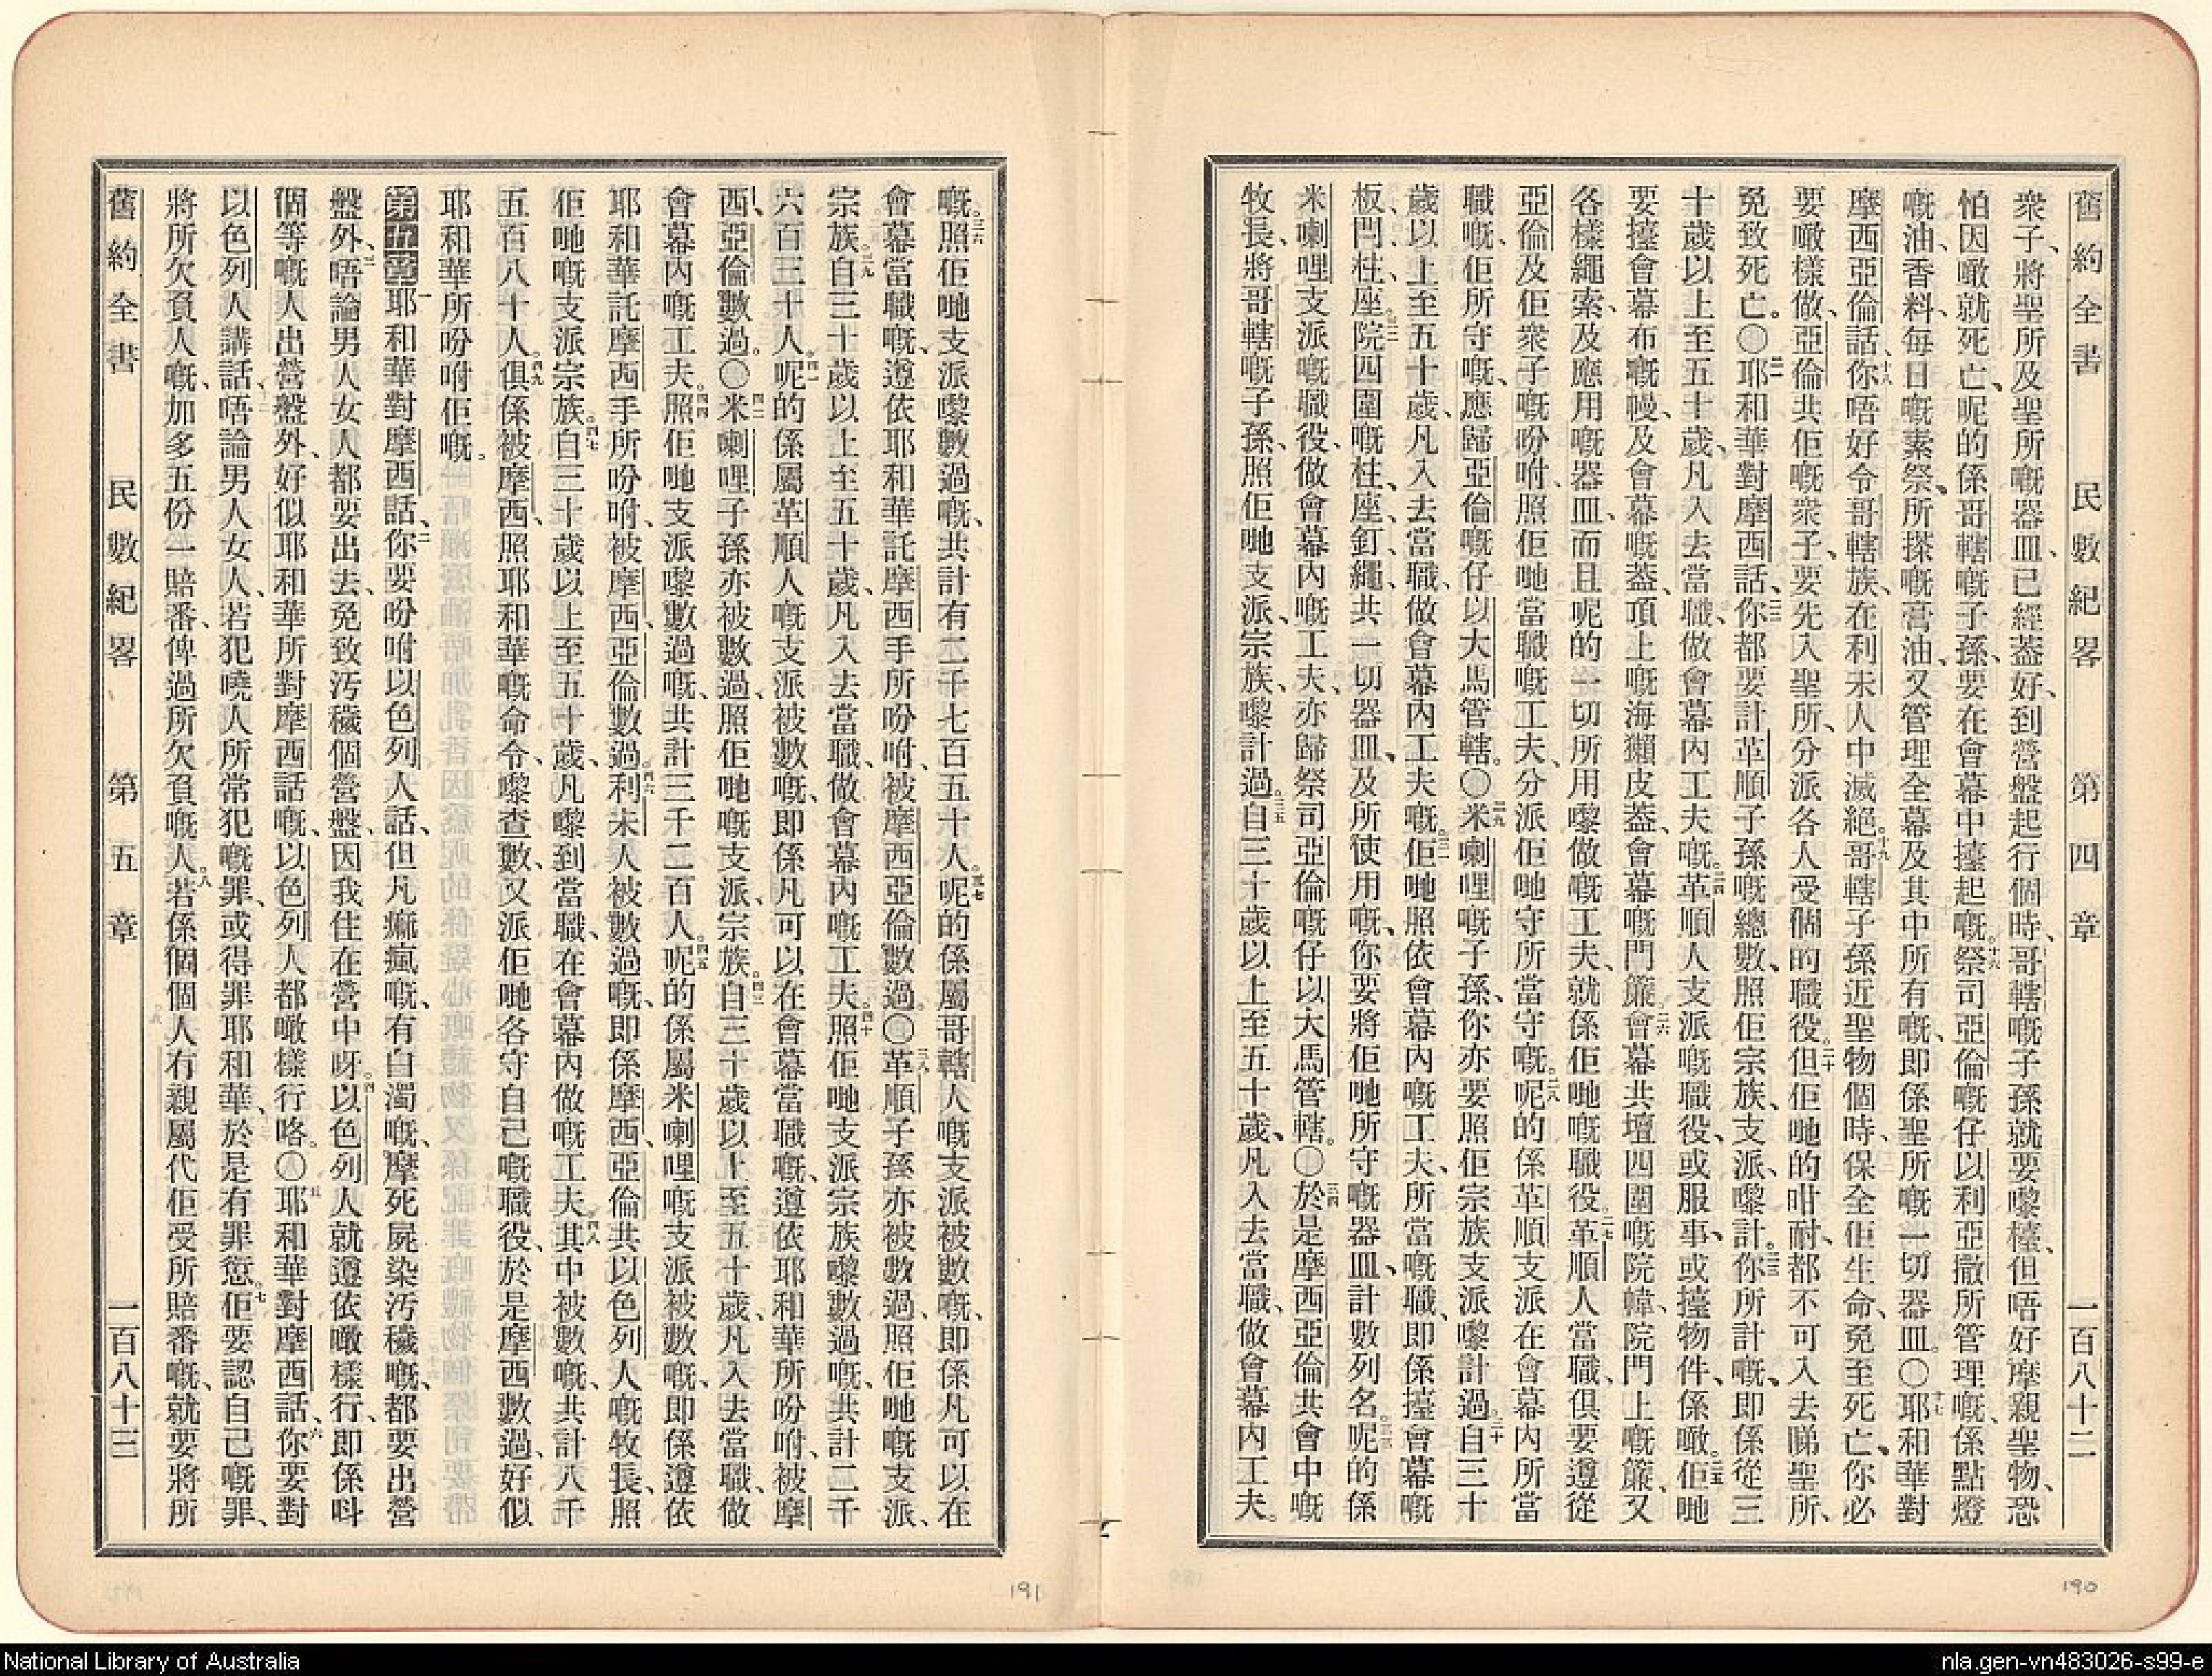 舊約全書　民數紀畧　第四章　一百八十二
衆子、將聖所及聖所嘅器皿、已經蓋好、到營盤起行個時、哥轄嘅子孫就要嚟擡、但唔好摩親聖物、恐
怕因噉就死亡、呢的係哥轄嘅子孫、要在會幕中擡起嘅。十六祭司亞倫嘅仔以利亞撒所管理嘅、係點燈
嘅油、香料、每日嘅素祭、所搽嘅膏油、又管理全幕及其中所有嘅、即係聖所嘅一切器皿。〇十七耶和華對
摩西亞倫話、十八你唔好令哥轄族、在利未人中滅絕。十九哥轄子孫近聖物個時、保全佢生命、免至死亡、你必
要噉樣做、亞倫共佢嘅衆子、要先入聖所、分派各人受個的職役。二十但佢哋的咁耐、都不可入去睇聖所、
免致死亡。〇二一耶和華對摩西話、二二你都要計革順子孫嘅總數、照佢宗族、支派、嚟計。二三你所計嘅、即係從三
十歲以上至五十歲、凡入去當職、做會幕內工夫嘅。二四革順人支派嘅職役、或服事、或擡物件、係噉。二五佢哋
要擡會幕布嘅幔、及會幕嘅蓋、頂上嘅海獺皮蓋、會幕嘅門簾。二六會幕共壇四圍嘅院幃、院門上嘅簾、又
各樣繩索、及應用嘅器皿、而且呢的一切所用嚟做嘅工夫、就係佢哋嘅職役。二七革順人當職、俱要遵從
亞倫及佢衆子嘅吩咐、照佢哋當職嘅工夫、分派佢哋守所當守嘅。二八呢的係革順支派在會幕內所當
職嘅、佢所守嘅、應歸亞倫嘅仔以大馬管轄。〇二九米喇哩嘅子孫、你亦要照佢宗族支派嚟計過。三十自三十
歲以上至五十歲、凡入去當職、做會幕內工夫嘅。三一佢哋照依會幕內嘅工夫、所當嘅職、即係擡會幕嘅
板、閂、柱、座。三二院四圍嘅柱、座、釘、繩、共一切器皿、及所使用嘅、你要將佢哋所守嘅器皿、計數列名。三三呢的係
米喇哩支派嘅職役、做會幕內嘅工夫、亦歸祭司亞倫嘅仔以大馬管轄。〇三四於是摩西亞倫共會中嘅
牧長、將哥轄嘅子孫、照佢哋支派、宗族、嚟計過。三五自三十歲以上至五十歲、凡入去當職、做會幕內工夫。
190
嘅。三六照佢哋支派嚟數過嘅、共計有二千七百五十人。三七呢的係屬哥轄人嘅支派被數嘅、即係凡可以在
會幕當職嘅、遵依耶和華託摩西手所吩咐、被摩西亞倫數過。〇三八革順子孫亦被數過、照佢哋嘅支派、
宗族。三九自三十歲以上至五十歲、凡入去當職、做會幕內嘅工夫。四十照佢哋支派宗族嚟數過嘅、共計二千
六百三十人。四一呢的係屬革順人嘅支派被數嘅、即係凡可以在會幕當職嘅、遵依耶和華所吩咐、被摩
西、亞倫數過。〇四二米喇哩子孫亦被數過、照佢哋嘅支派、宗族。四三自三十歲以上至五十歲、凡入去當職、做
會幕內嘅工夫。四四照佢哋支派嚟數過嘅、共計三千二百人。四五呢的係屬米喇哩嘅支派被數嘅、即係遵依
耶和華託摩西手所吩咐、被摩西、亞倫數過。四六利未人被數過嘅、即係摩西、亞倫共以色列人嘅牧長、照
佢哋嘅支派宗族。四七自三十歲以上至五十歲、凡嚟到當職、在會幕內做嘅工夫。四八其中被數嘅、共計八千
五百八十人。四九俱係被摩西、照耶和華嘅命令、嚟查數、又派佢哋各守自己嘅職役、於是摩西數過、好似
耶和華所吩咐佢嘅。
第五章一耶和華對摩西話、二你要吩咐以色列人話、但凡痲瘋嘅、有白濁嘅、摩死屍染汚穢嘅、都要出營
盤外、三唔論男人女人、都要出去、免致汚穢個營盤、因我住在營中呀。四以色列人就遵依噉樣行、即係呌
個等嘅人出營盤外、好似耶和華所對摩西話嘅、以色列人都噉樣行咯。〇五耶和華對摩西話、六你要對
以色列人講話、唔論男人女人、若犯嘵人所常犯嘅罪、或得罪耶和華、於是有罪愆。七佢要認自己嘅罪、
將所欠負人嘅、加多五份一賠番、俾過所欠負嘅人。八若係個個人冇親屬代佢受所賠番嘅、就要將所
舊約全書　民數紀畧　第五章　一百八十三
191
National Library of Australia
nla.gen-vn483026-s99-e